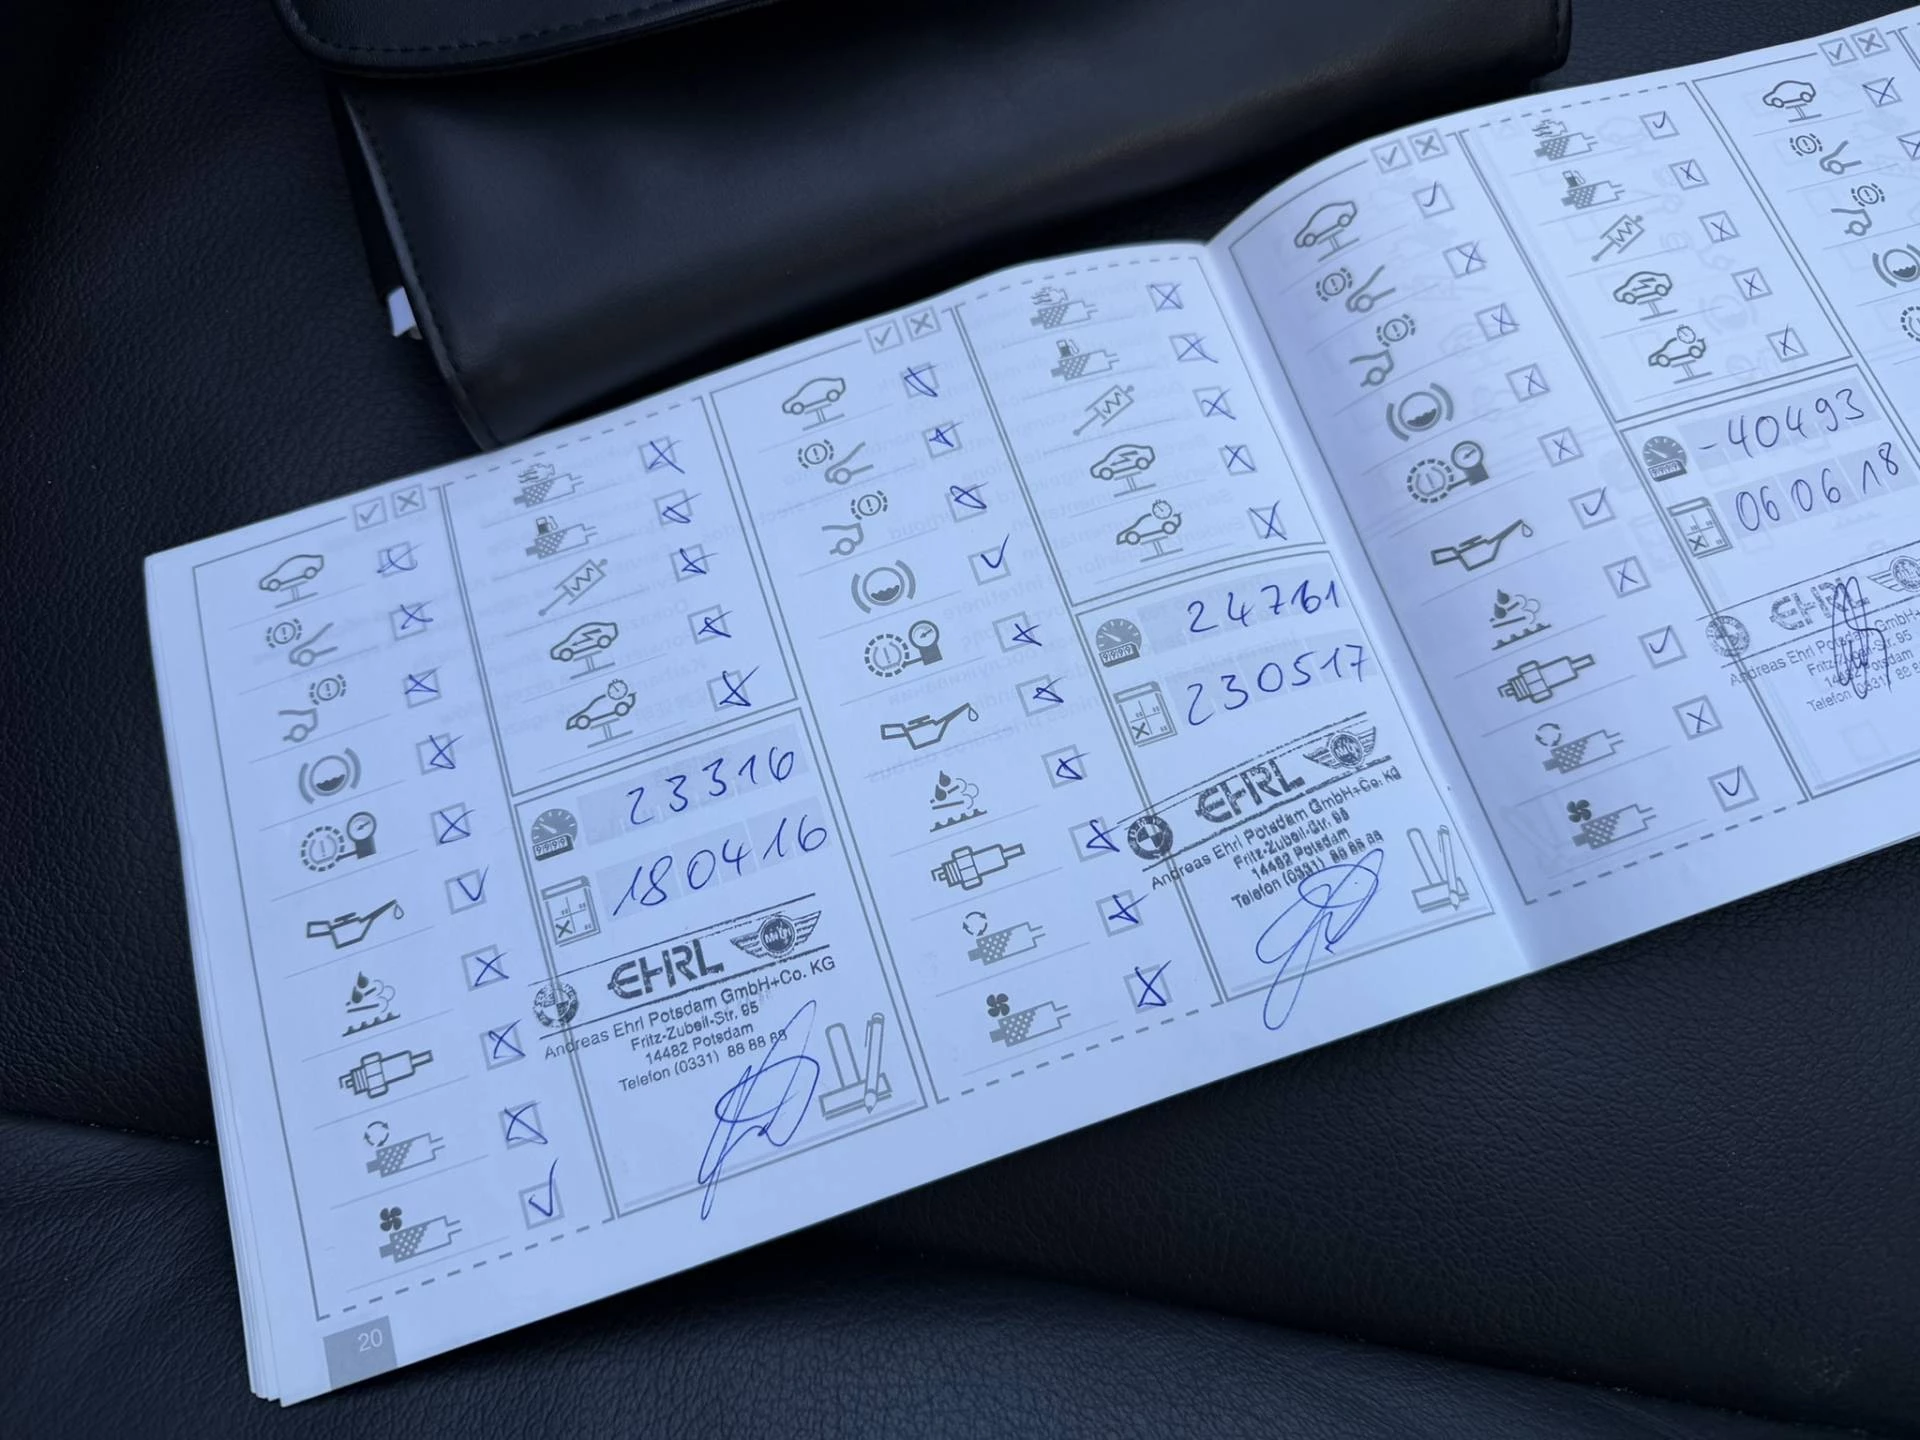 23316
180416
EHRL
MINI
Andreas Ehrl Potsdam GmbH+Co. KG
Fritz-Zubeil-Str. 95
14482 Potsdam
Telefon (0331) 88 88 88
20
24761
230517
EHRL
MINI
BMW
Andreas Ehrl Potsdam GmbH+Co. KG
Fritz-Zubeil-Str. 95
14482 Potsdam
Telefon (0331) 88 88 88
-40493
060618
EHRL
Andreas Ehrl Potsdam GmbH+
Fritz-Zubeil-Str. 95
14482 Potsdam
Telefon (0331) 88 8